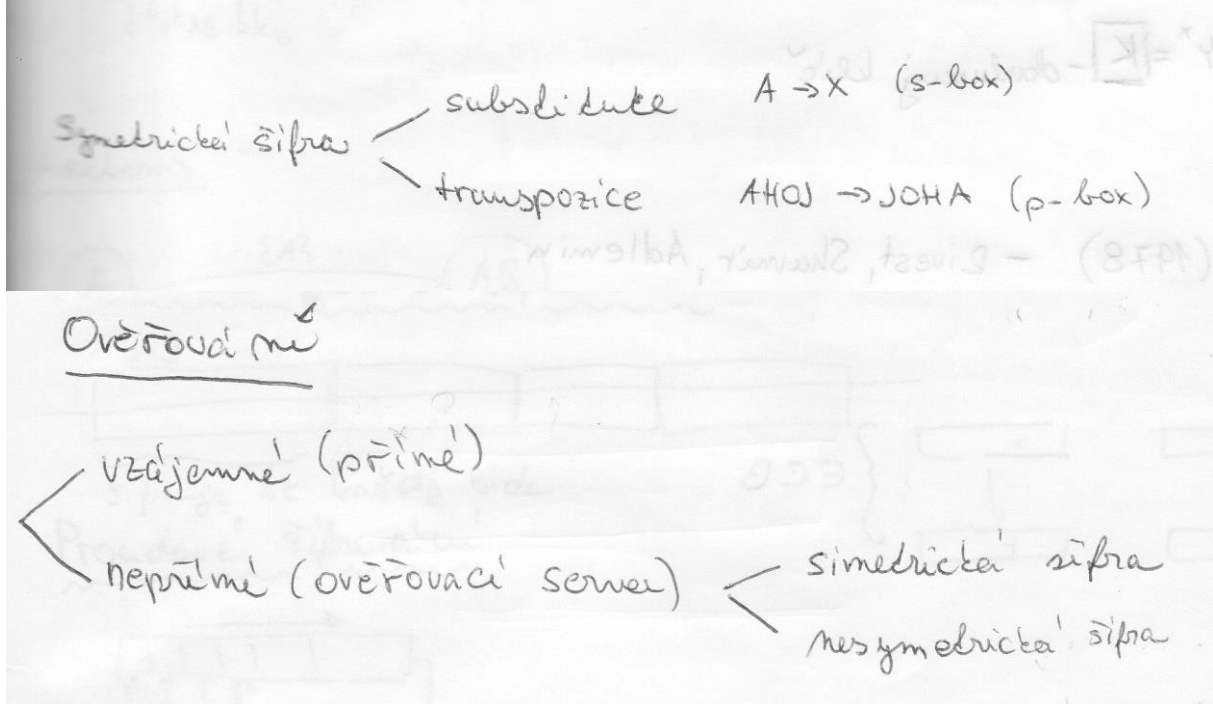 substituce A → X (s-box)
Symetrická šifra
transpozice AHOJ → JOHA (p-box)
Ověřování
vzájemné (přímé)
nepřímé (ověřovací server)
simetrická šifra
nesymetrická šifra